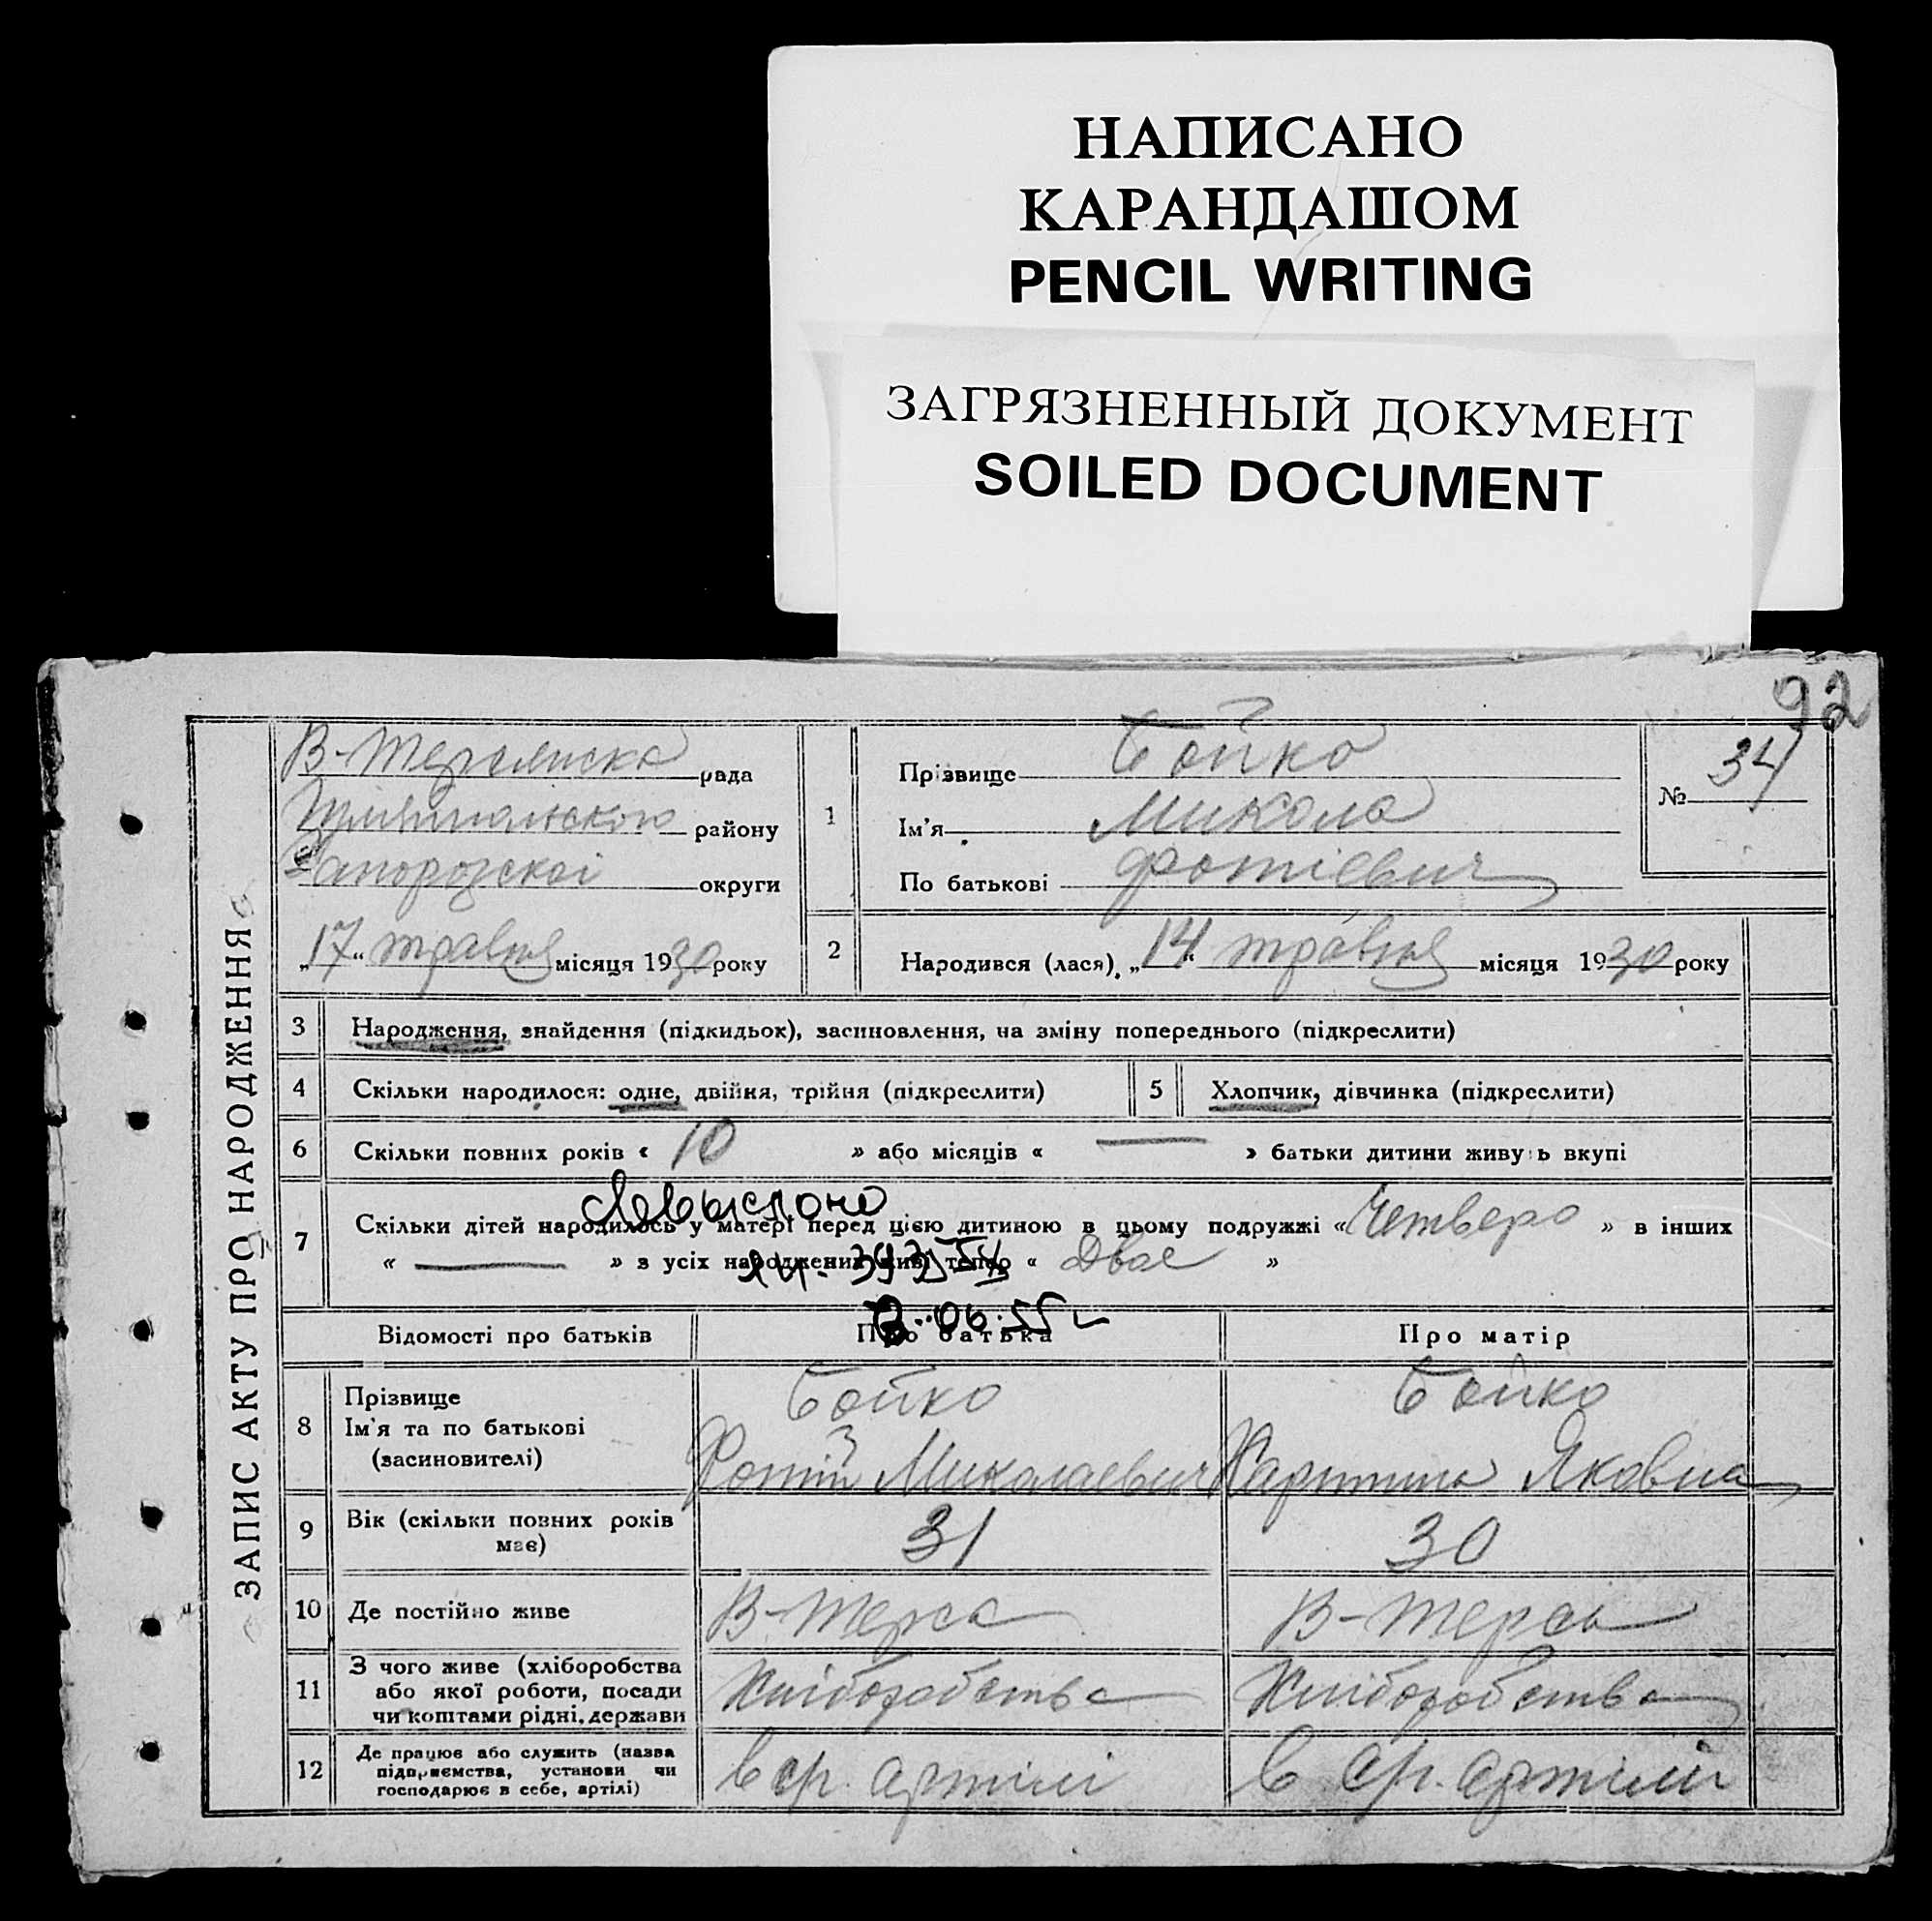 НАПИСАНО
КАРАНДАШОМ
PENCIL WRITING
ЗАГРЯЗНЕННЫЙ ДОКУМЕНТ
SOILED DOCUMENT
92
ЗАПИС АКТУ ПРО НАРОДЖЕННЯ
рада
району
округи
„17“ травня місяця 1930 року
1
Прізвище Бойко
Ім'я Микола
По батькові Фотієвич
№ 34
2
Народився (лася) „14“ травня місяця 1930 року
3 Народження, знайдення (підкидьок), засиновлення, на зміну попереднього (підкреслити)
4 Скільки народилося: одне, двійня, трійня (підкреслити)
5 Хлопчик, дівчинка (підкреслити)
6 Скільки повних років « 10 » або місяців « — » батьки дитини живуть вкупі
7 Скільки дітей народилось у матері перед цією дитиною в цьому подружжі «Четверо» в інших
« — » з усіх народжених живі тепер « Двоє »
06.55
Відомості про батьків
Про батька
Про матір
8 Прізвище
Ім'я та по батькові
(засиновителі)
Бойко
Фотій Миколаевич
Бойко
Яковна
9 Вік (скільки повних років
має)
31
30
10 Де постійно живе
В-Терса
В-Терса
11 З чого живе (хліборобства
або якої роботи, посади
чи коштами рідні, держави
Хліборобства
Хліборобства
12 Де працює або служить (назва
підприємства, установи чи
господарює в себе, артілі)
в ср. артілі
в ср. артілі